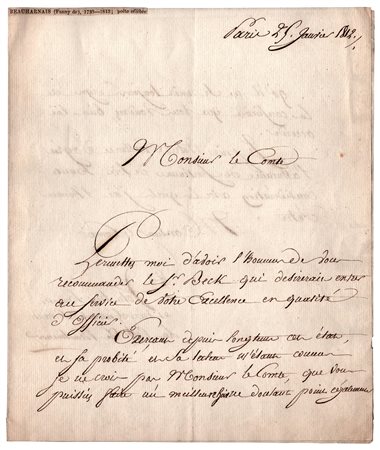 BEAUHARNAIS (Fanny de), 1737-1813; poète célèbre
Paris 25 Janvier 1812.
Monsieur le Comte
Permettez moi d'avoir l'honneur de vous
recommander le Sr. Beck qui desirerait entrer
au service de votre Excellence en qualité
d'Officier
Exerçant depuis longtems cet état,
et sa probité et sa m'étant connue
je ne crois pas Monsieur le Comte, que vous
puissiés faire un meilleur ne doutant point